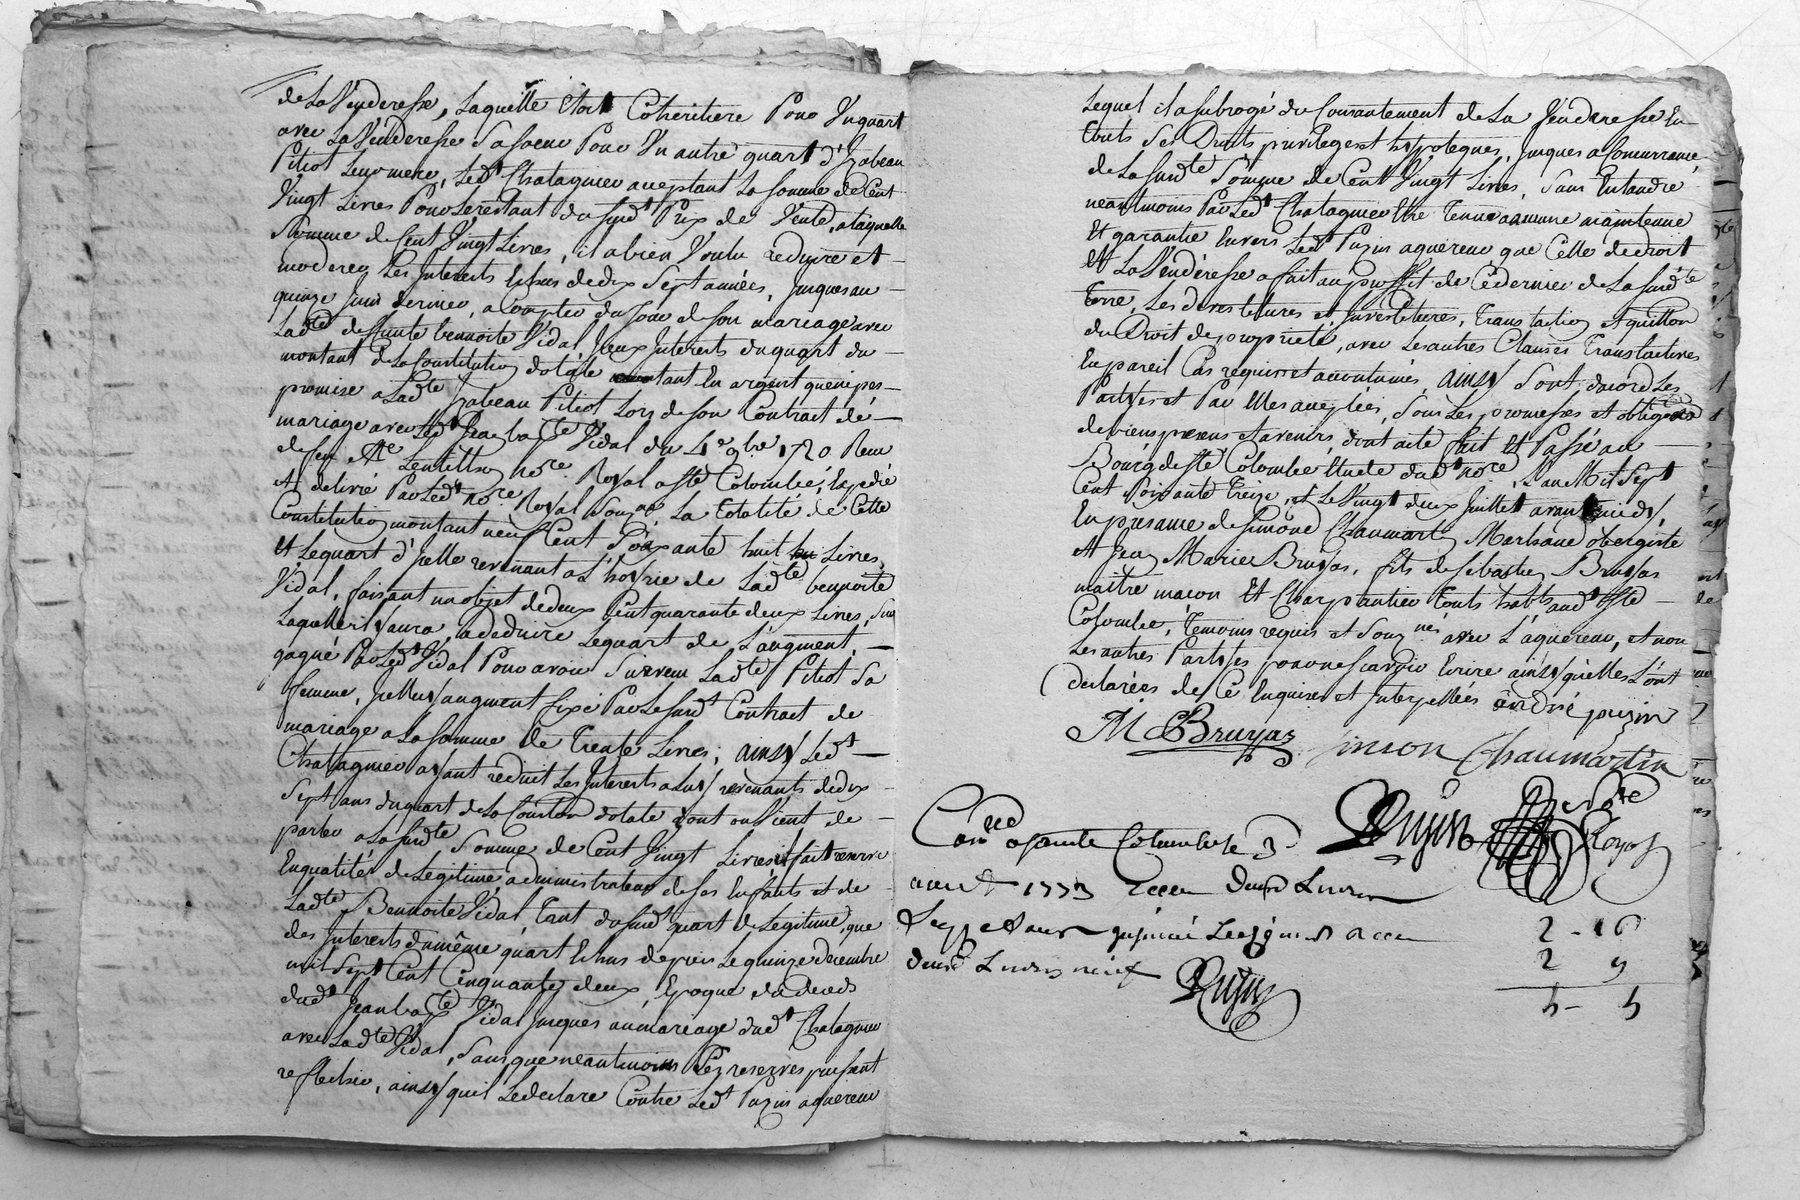 de La Venderesse, Laquelle Etoit Coheritiere Pour Vn quart
avec La Venderesse Sa soeur Pour Vn autre quart d'Izabeau
Pitiot Leur mere, Led.t Chatagnier acceptant La somme de Cent
Vingt Livres Pour Le restant du Susd.t Prix de Vente, a laquelle
Somme de Cent Vingt Livres, il a bien Voulu reduire et
moderer Les Interets Echus de dix Sept années, Jusques au
quinze Juin dernier, a Compter du Jour de son mariage avec
Lad.te deffunte bennoite Vidal Iceux Interets du quart du
montant de La Constitution dotale tant En argent qu'en
promise a Lad.te Izabeau Pitiot Lors de son Contract de
mariage avec Led.t Jean ba.te Vidal du 4.e 9.bre 1720 Recu
de feu M.e Lentillon no.re Royal a S.te Colombe, Expedié
Et delivré Par Led.t no.re Royal Sous.né, La Totalité de Cette
Constitution montant neuf Cent Soixante huit Livres,
Et Le quart d'Icelle revenant a L'hoyrie de Lad.te bennoite
Vidal, faisant un objet de deux Cent quarante deux Livres, Sur
Laquelle il y aura a deduire Le quart de L'augment,
gagné Par Led.t Vidal Pour avoir Survecu Lad.te Pitiot Sa
femme, Icelluy augment fixé Par Le Susd.t Contract de
mariage a La Somme de Trente Livres; ainsy Led.t
Chatagnier ayant reduit Les Interets a Luy revenants de dix
Sept ans du quart de La Const.on dotale dont on Vient de
parler a La Sud.te Somme de Cent Vingt Livres il fait reserve
En qualité de Legitime administrateur de Ses Enfants et de
Lad.te Bennoite Vidal, Tant du Sud.t quart de Legitime, que
des Interets du même quart Echus depuis Le quinze Decembre
mil Sept Cent Cinquante deux, Epoque du deceds
dud.t Jean ba.te Vidal Jusques au mariage dud.t Chatagnier
avec Lad.te Vidal, Sans que neantmoins Ces reserves puissent
reflechir, ainsy qu'il Le declare Contre Led.t Puzin aquereur
Lequel il a subrogé du Consentement de La Venderesse En
touts Ses Droits privileges et hypoteques, Jusques a Concurrance
de La Susd.te Somme de Cent Vingt Livres, Sans Entandre
neantmoins Par Led.t Chatagnier Etre Tenu a aucune maintenue
Et garantie Envers Led.t Puzin aquereur que Celle de droit
Et La Venderesse a fait au proffit de Ce dernier de La Sud.te
Terre, Les devestitures et Investitures, Translation et quitton
du Droit de proprieté, avec Les autres Clauses Translatives
En pareil Cas requises et accoutumés, ainsy Sont d'acord Les
Parties et Par Elles acceptées, Sous Les promesses et obligaons
de biens presens et avenirs, dont acte fait Et Passé au
Bourg de S.te Colombe Etude dud.t no.re, L'an Mil Sept
Cent Soixante Treize, et Le Vingt deux Juillet avant midy,
En presance de Simond Chaumartin Marchand obergiste
Et Jean Marie Bruyas, fils de Sebastien Bruyas
maître macon Et Charpantier Touts hab.ts aud.t S.te
Colombe, Temoins requis et Sous.nés avec L'aquereur, et non
Les autres Parties pour ne Scavoir Ecrire ainsy qu'elles L'ont
declarées de Ce Enquises et Interpellées andré puzin
M Bruyas Simon Chaumartin
Con.lle a sainte Colombe le 3
aoust 1773 Recu deux Livres
2 - 16
2 9
5 - 5